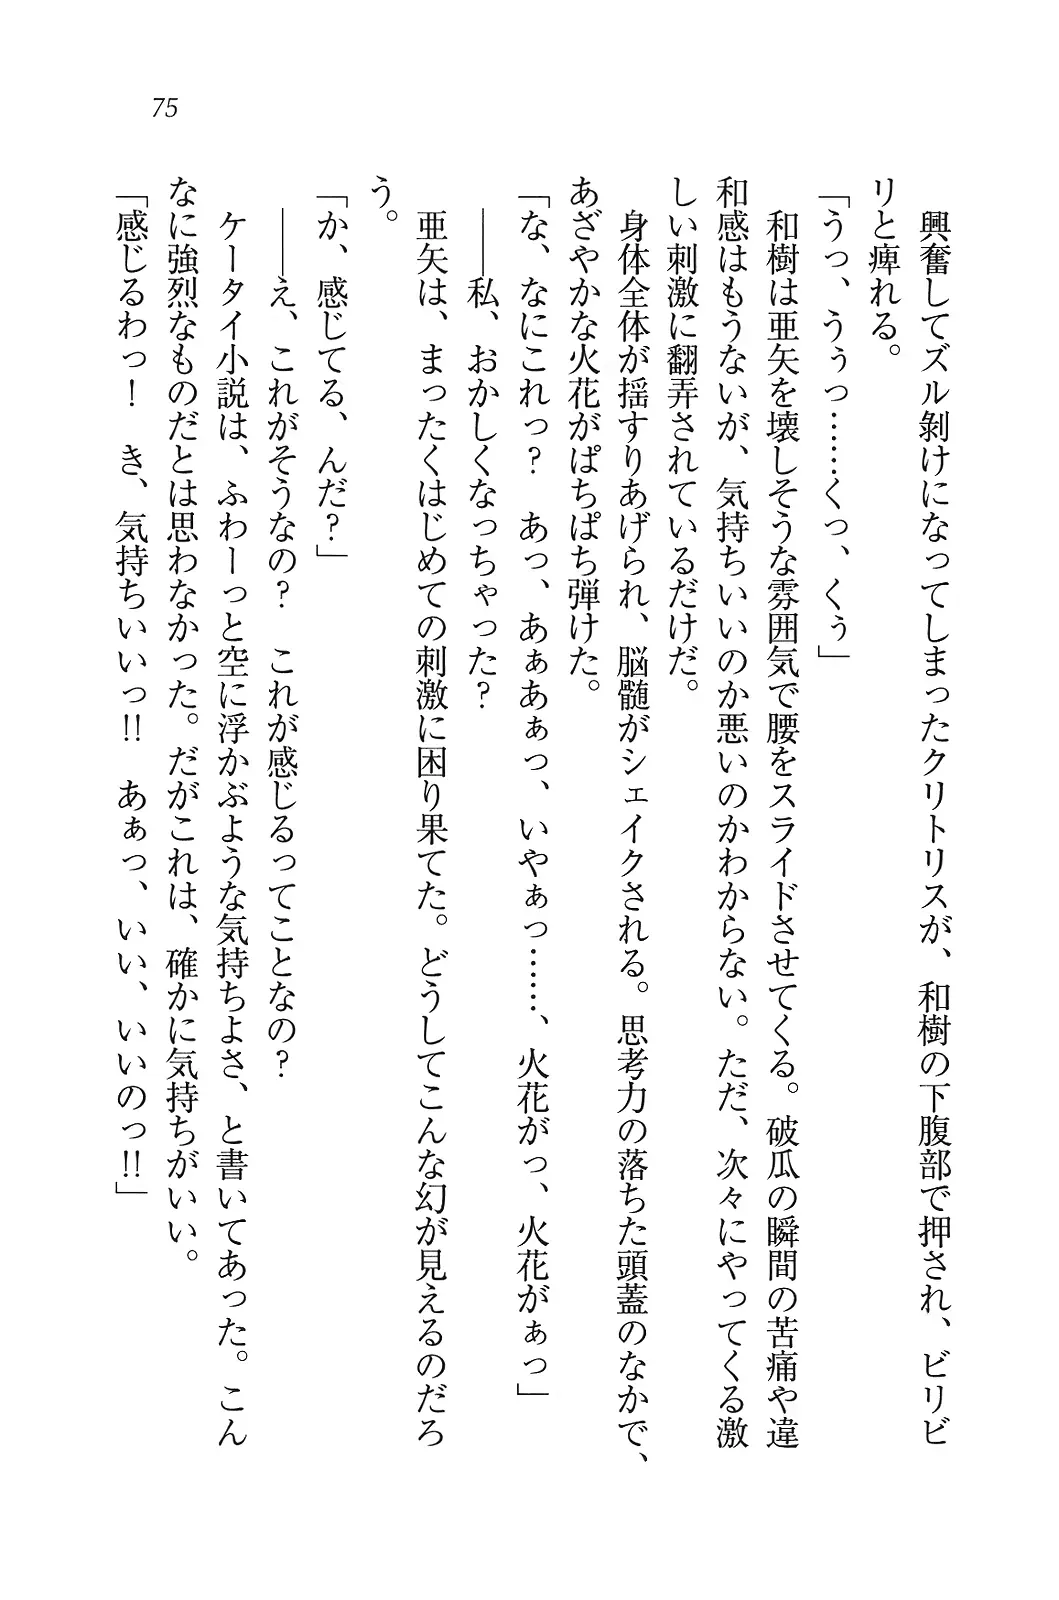 75
興奮してズル剝けになってしまったクリトリスが、和樹の下腹部で押され、ビリビ
リと痺れる。
「うっ、うぅっ……くっ、くぅ」
和樹は亜矢を壊しそうな雰囲気で腰をスライドさせてくる。破瓜の瞬間の苦痛や違
和感はもうないが、気持ちいいのか悪いのかわからない。ただ、次々にやってくる激
しい刺激に翻弄されているだけだ。
身体全体が揺すりあげられ、脳髄がシェイクされる。思考力の落ちた頭蓋のなかで、
あざやかな火花がぱちぱち弾けた。
「な、なにこれっ？　あっ、あぁあぁっ、いやぁっ……、火花がっ、火花がぁっ」
――私、おかしくなっちゃった？
亜矢は、まったくはじめての刺激に困り果てた。どうしてこんな幻が見えるのだろ
う。
「か、感じてる、んだ？」
――え、これがそうなの？　これが感じるってことなの？
ケータイ小説は、ふわーっと空に浮かぶような気持ちよさ、と書いてあった。こん
なに強烈なものだとは思わなかった。だがこれは、確かに気持ちがいい。
「感じるわっ！　き、気持ちいいっ!!　あぁっ、いい、いいのっ!!」